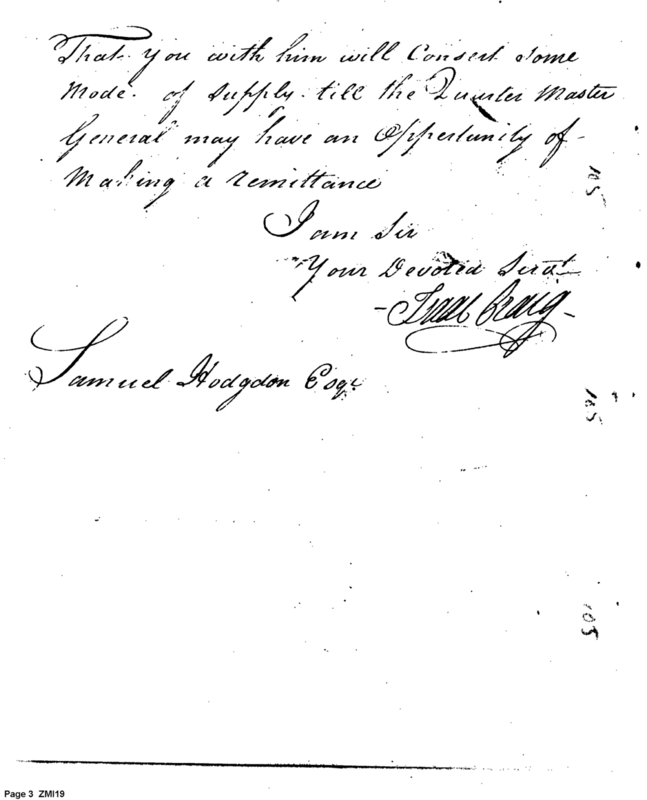 That you with him will Consert some
Mode of supply till the Quarter Master
General may have an Oppertunity of
Making a remittance
I am Sir
Your Devoted Servt
Isaac Craig
Samuel Hodgdon Esqr
105
105
105
Page 3 ZMI19